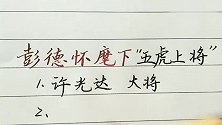 彭德怀麾下“五虎上将”
1. 许光达 大将
2、